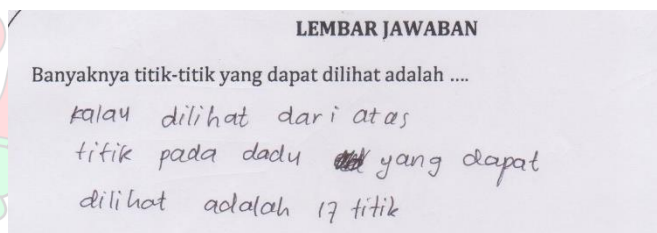 LEMBAR JAWABAN
Banyaknya titik-titik yang dapat dilihat adalah ....
kalau dilihat dari atas
titik pada dadu yang dapat
dilihat adalah 17 titik